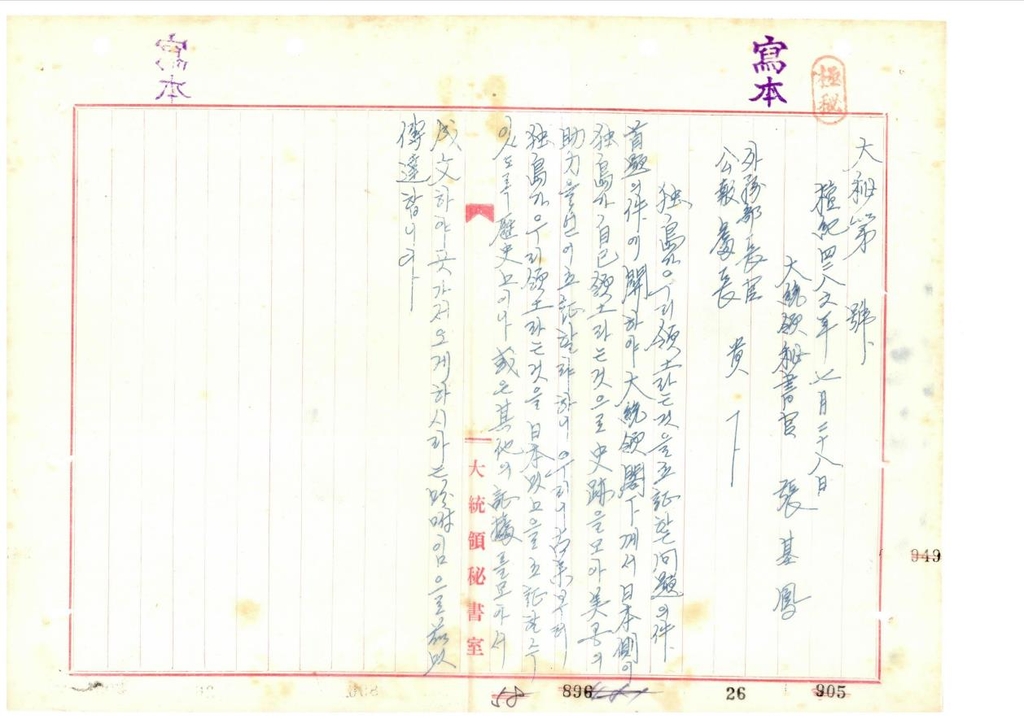 寫本
極秘
寫本
大秘第 號
檀紀四二八六年 七月二十八日
大統領秘書官 張基鳳
外務部長官
公報處長 貴下
独島가우리領土라는것을立証할問題의件
首題의件에関하야大統領閣下께서日本側이
独島가自己領土라는것으로史跡을모아美国의
助力을빌어立証할야하니우리
独島가우리領土라는것을日本以上으로立証할수
잇도록歷史上이나或은其他의証據를모아서
成文하야곳가저오게하시라는吩咐임으로玆以
傳達합니다
大統領秘書室
949
905
26
896
58